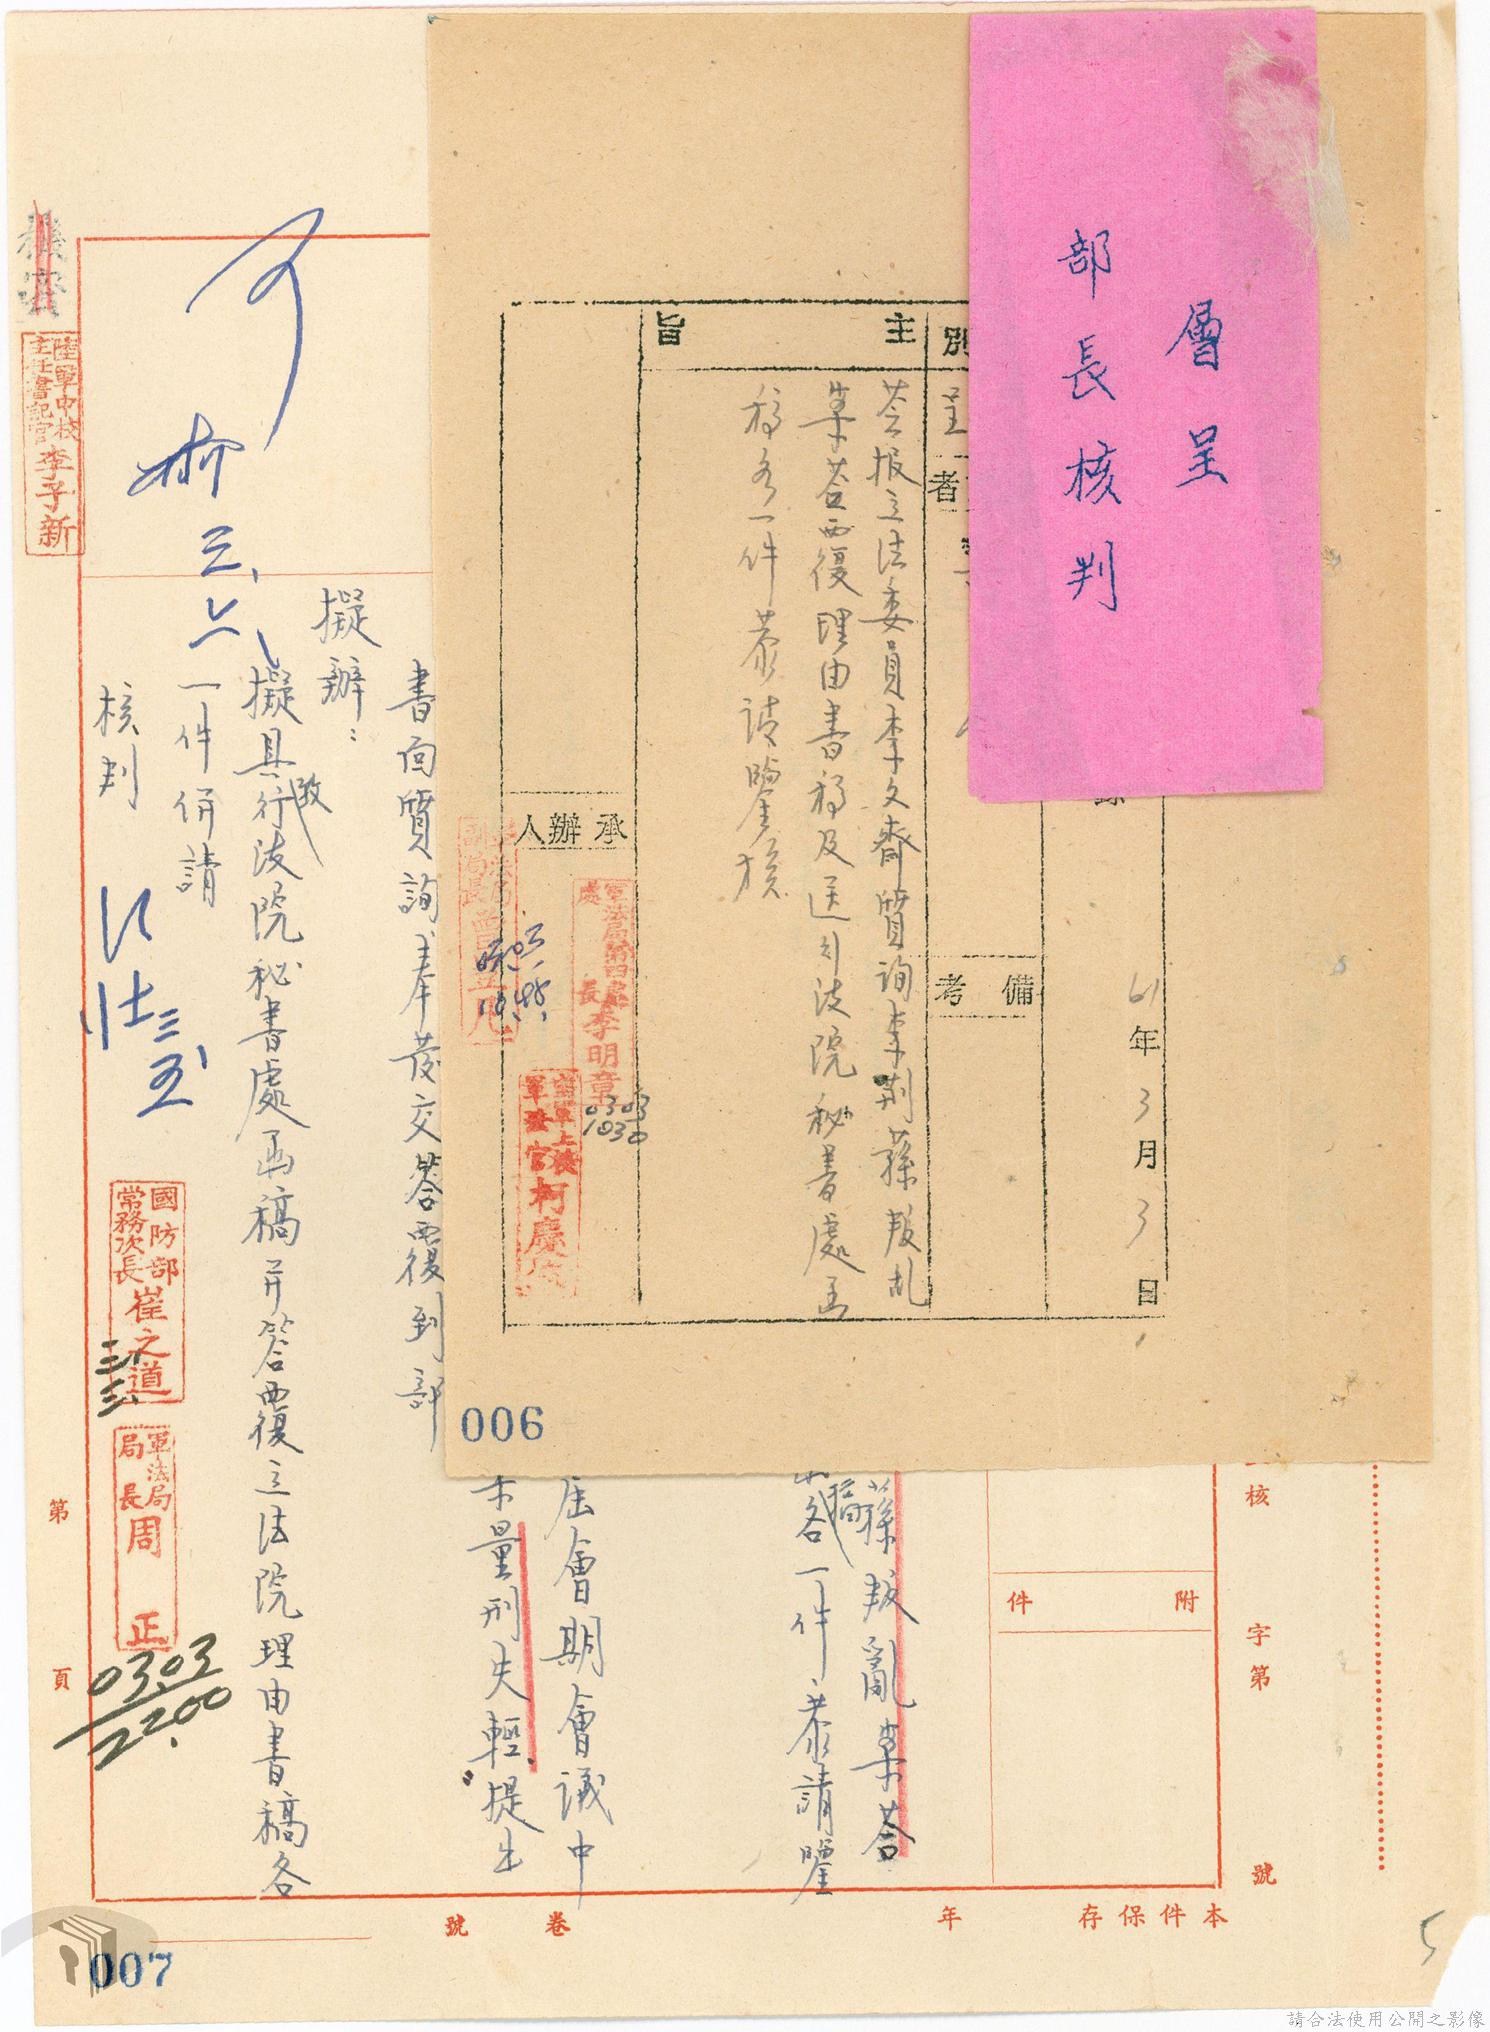 層呈
部長核判
別
呈
者
主旨
答报立法委員李文齋質詢李荊蓀叛乱
案答覆理由書稿及送行政院秘書處函
稿各一件恭請鑒核
備考
61年3月3日
承辦人
軍法局第四處
處長李明章
0303
1030
空軍上校
軍法官柯慶
軍法局
副局長曾
006
核
字第
號
附件
蓀叛亂案答
稿各一件恭請鑒
屆會期會議中
量刑失輕提出
書面質詢奉發交答覆到部
擬辦：
擬具致行政院秘書處函稿并答覆立法院理由書稿各
一件併請
核判
可
三、六、
三、五
機密
陸軍中校
主任書記官李子新
國防部
常務次長崔之道
三、三
軍法局
局長周正
03.03
2200
第
頁
本件保存
年
卷
號
007
5
請合法使用公開之影像